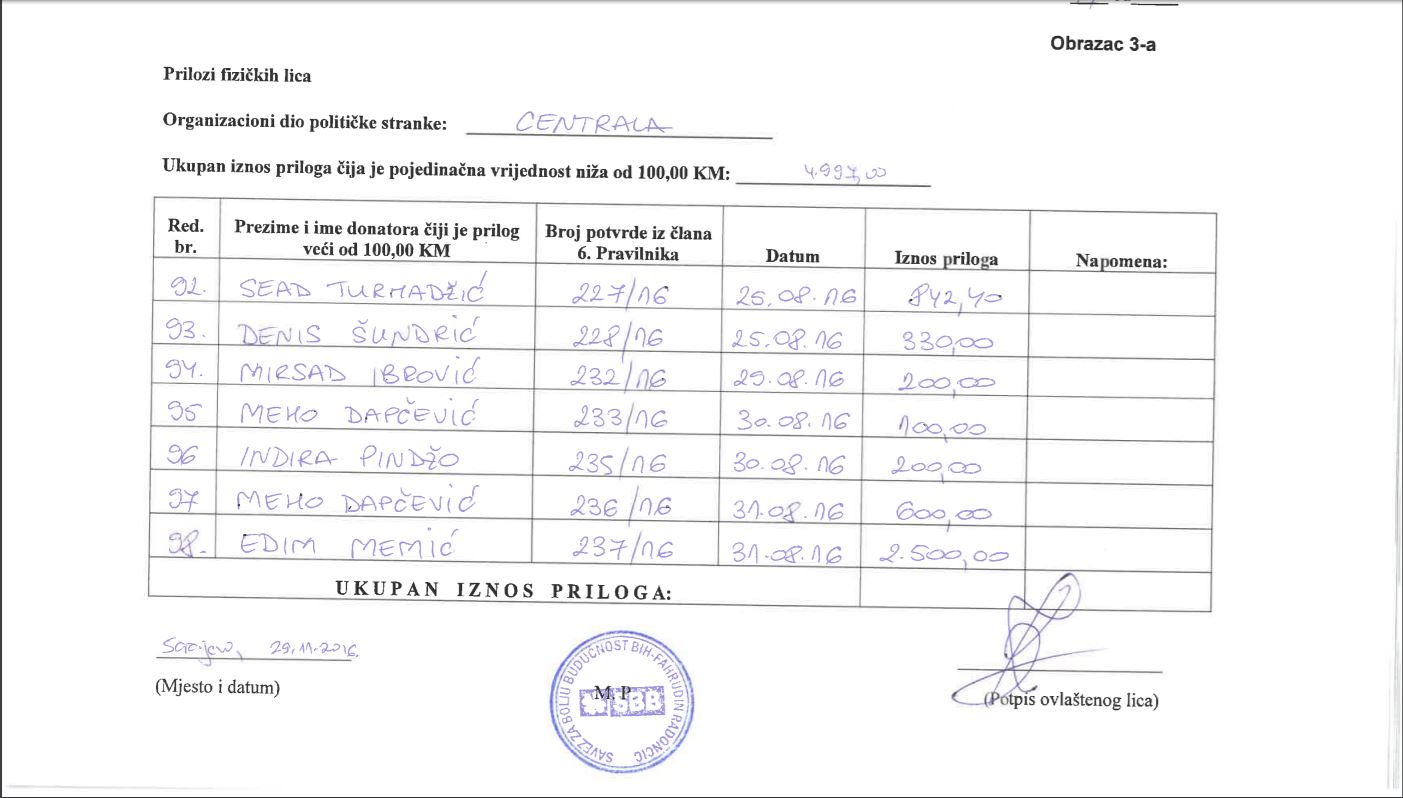 Obrazac 3-a
Prilozi fizičkih lica
Organizacioni dio političke stranke: CENTRALA
Ukupan iznos priloga čija je pojedinačna vrijednost niža od 100,00 KM: 4.997,00
Red. br. Prezime i ime donatora čiji je prilog veći od 100,00 KM Broj potvrde iz člana 6. Pravilnika Datum Iznos priloga Napomena:
92. SEAD TURMADŽIĆ 227/16 25.08.16 842,40
93. DENIS ŠUNDRIĆ 228/16 25.08.16 330,00
94. MIRSAD IBROVIĆ 232/16 29.08.16 200,00
95 MEHO DAPČEVIĆ 233/16 30.08.16 100,00
96 INDIRA PINDŽO 235/16 30.08.16 200,00
97 MEHO DAPČEVIĆ 236/16 31.08.16 600,00
98. EDIM MEMIĆ 237/16 31.08.16 2.500,00
UKUPAN IZNOS PRILOGA:
Sarajevo, 29.11.2016.
(Mjesto i datum)
M.P
SAVEZ ZA BOLJU BUDUĆNOST BIH-FAHRUDIN RADONČIĆ
SBB
(Potpis ovlaštenog lica)